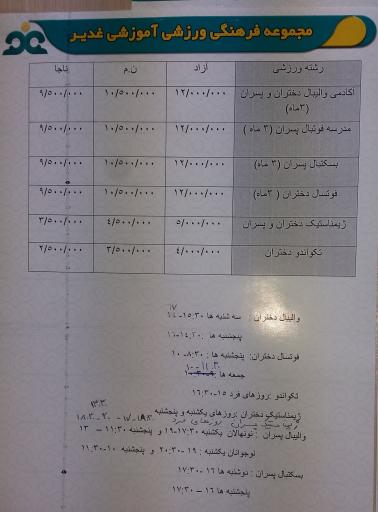 مجموعه فرهنگی ورزشی آموزشی غدیر
رشته ورزشی آزاد ن.م ناجا
اکادمی والیبال دختران و پسران (۳ماه) ۱۲/۰۰۰/۰۰۰ ۱۰/۵۰۰/۰۰۰ ۹/۵۰۰/۰۰۰
مدرسه فوتبال پسران (۳ ماه ) ۱۲/۰۰۰/۰۰۰ ۱۰/۵۰۰/۰۰۰ ۹/۵۰۰/۰۰۰
بسکتبال پسران (۳ ماه) ۱۲/۰۰۰/۰۰۰ ۱۰/۵۰۰/۰۰۰ ۹/۵۰۰/۰۰۰
فوتسال دختران ( ۳ماه) ۱۲/۰۰۰/۰۰۰ ۱۰/۵۰۰/۰۰۰ ۹/۵۰۰/۰۰۰
ژیمناستیک دختران و پسران ۵/۰۰۰/۰۰۰ ۴/۵۰۰/۰۰۰ ۳/۵۰۰/۰۰۰
تکواندو دختران ۴/۰۰۰/۰۰۰ ۳/۵۰۰/۰۰۰ ۲/۵۰۰/۰۰۰
والیبال دختران : سه شنبه ها ۱۵:۳۰- ۱۷
پنجشنبه ها :
فوتسال دختران: پنجشنبه ها : ۸:۳۰- ۱۰
جمعه ها
تکواندو :روزهای فرد ۱۵-۱۶:۳۰
ژیمناستیک دختران :روزهای یکشنبه و پنجشنبه
ژیمناستیک پسران روزهای فرد
والیبال پسران : نونهالان یکشنبه ۱۷:۳۰-۱۹ و پنجشنبه ۱۱:۳۰ – ۱۳
نوجوانان یکشنبه : ۱۹ -۲۰:۳۰ و پنجشنبه ۱۰-۱۱:۳۰
بسکتبال پسران : دوشنبه ها ۱۶ -۱۷:۳۰
پنجشنبه ها ۱۶ – ۱۷:۳۰